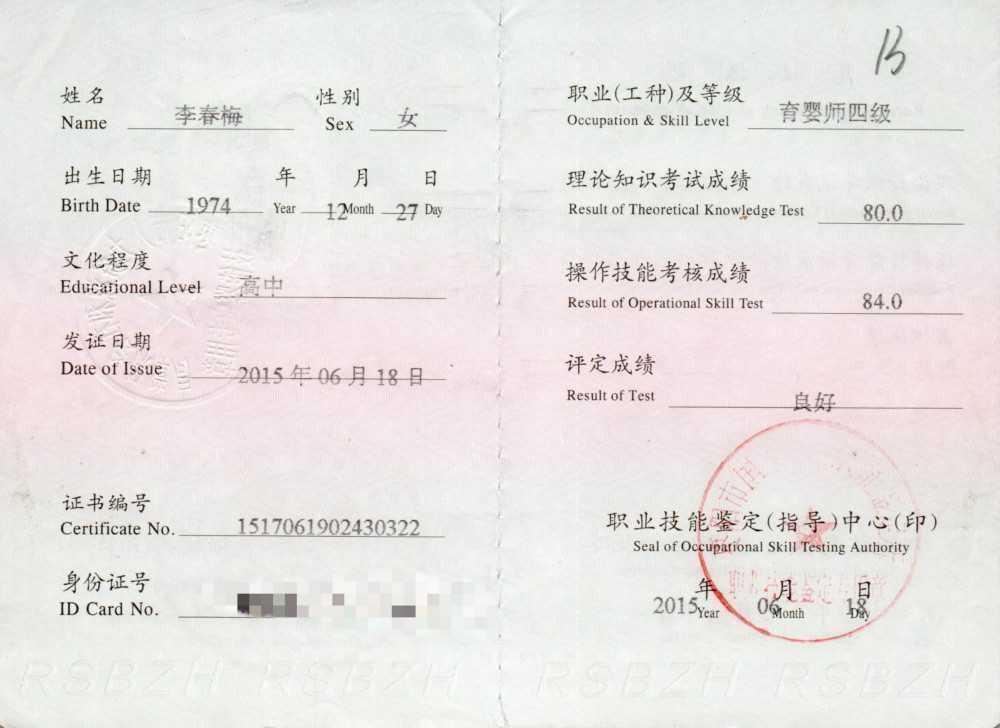 姓名 李春梅 性别 女
Name Sex
出生日期 年 月 日
Birth Date 1974 Year 12 Month 27 Day
文化程度
Educational Level 高中
发证日期
Date of Issue 2015 年 06 月 18 日
证书编号
Certificate No. 1517061902430322
身份证号
ID Card No.
RSBZH RSBZH
B
职业(工种)及等级 育婴师四级
Occupation & Skill Level
理论知识考试成绩
Result of Theoretical Knowledge Test 80.0
操作技能考核成绩
Result of Operational Skill Test 84.0
评定成绩
Result of Test 良好
职业技能鉴定(指导)中心(印)
Seal of Occupational Skill Testing Authority
年 月 日
2015 Year 06 Month 18 Day
RSBZH RSBZH